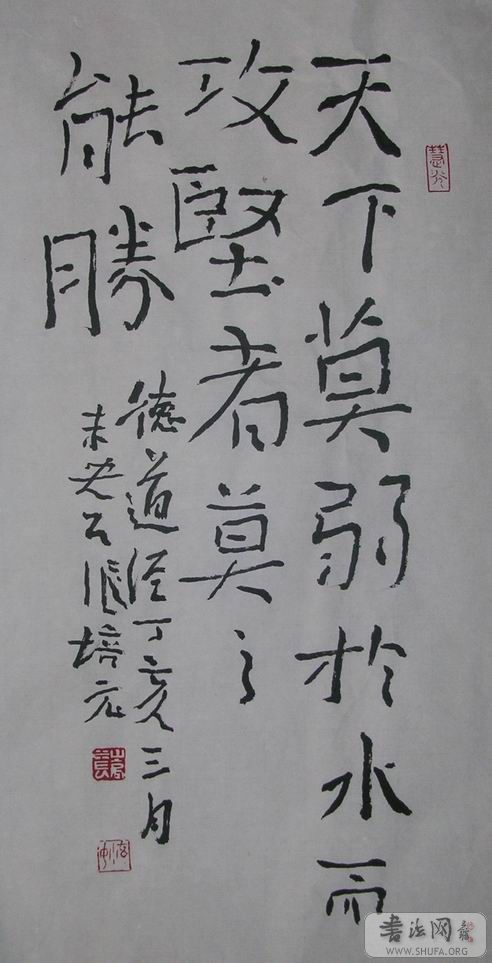 天下莫弱於水而
攻堅者莫之
能勝
德道经丁亥三月
未央張培元
書法网
WWW.SHUFA.ORG